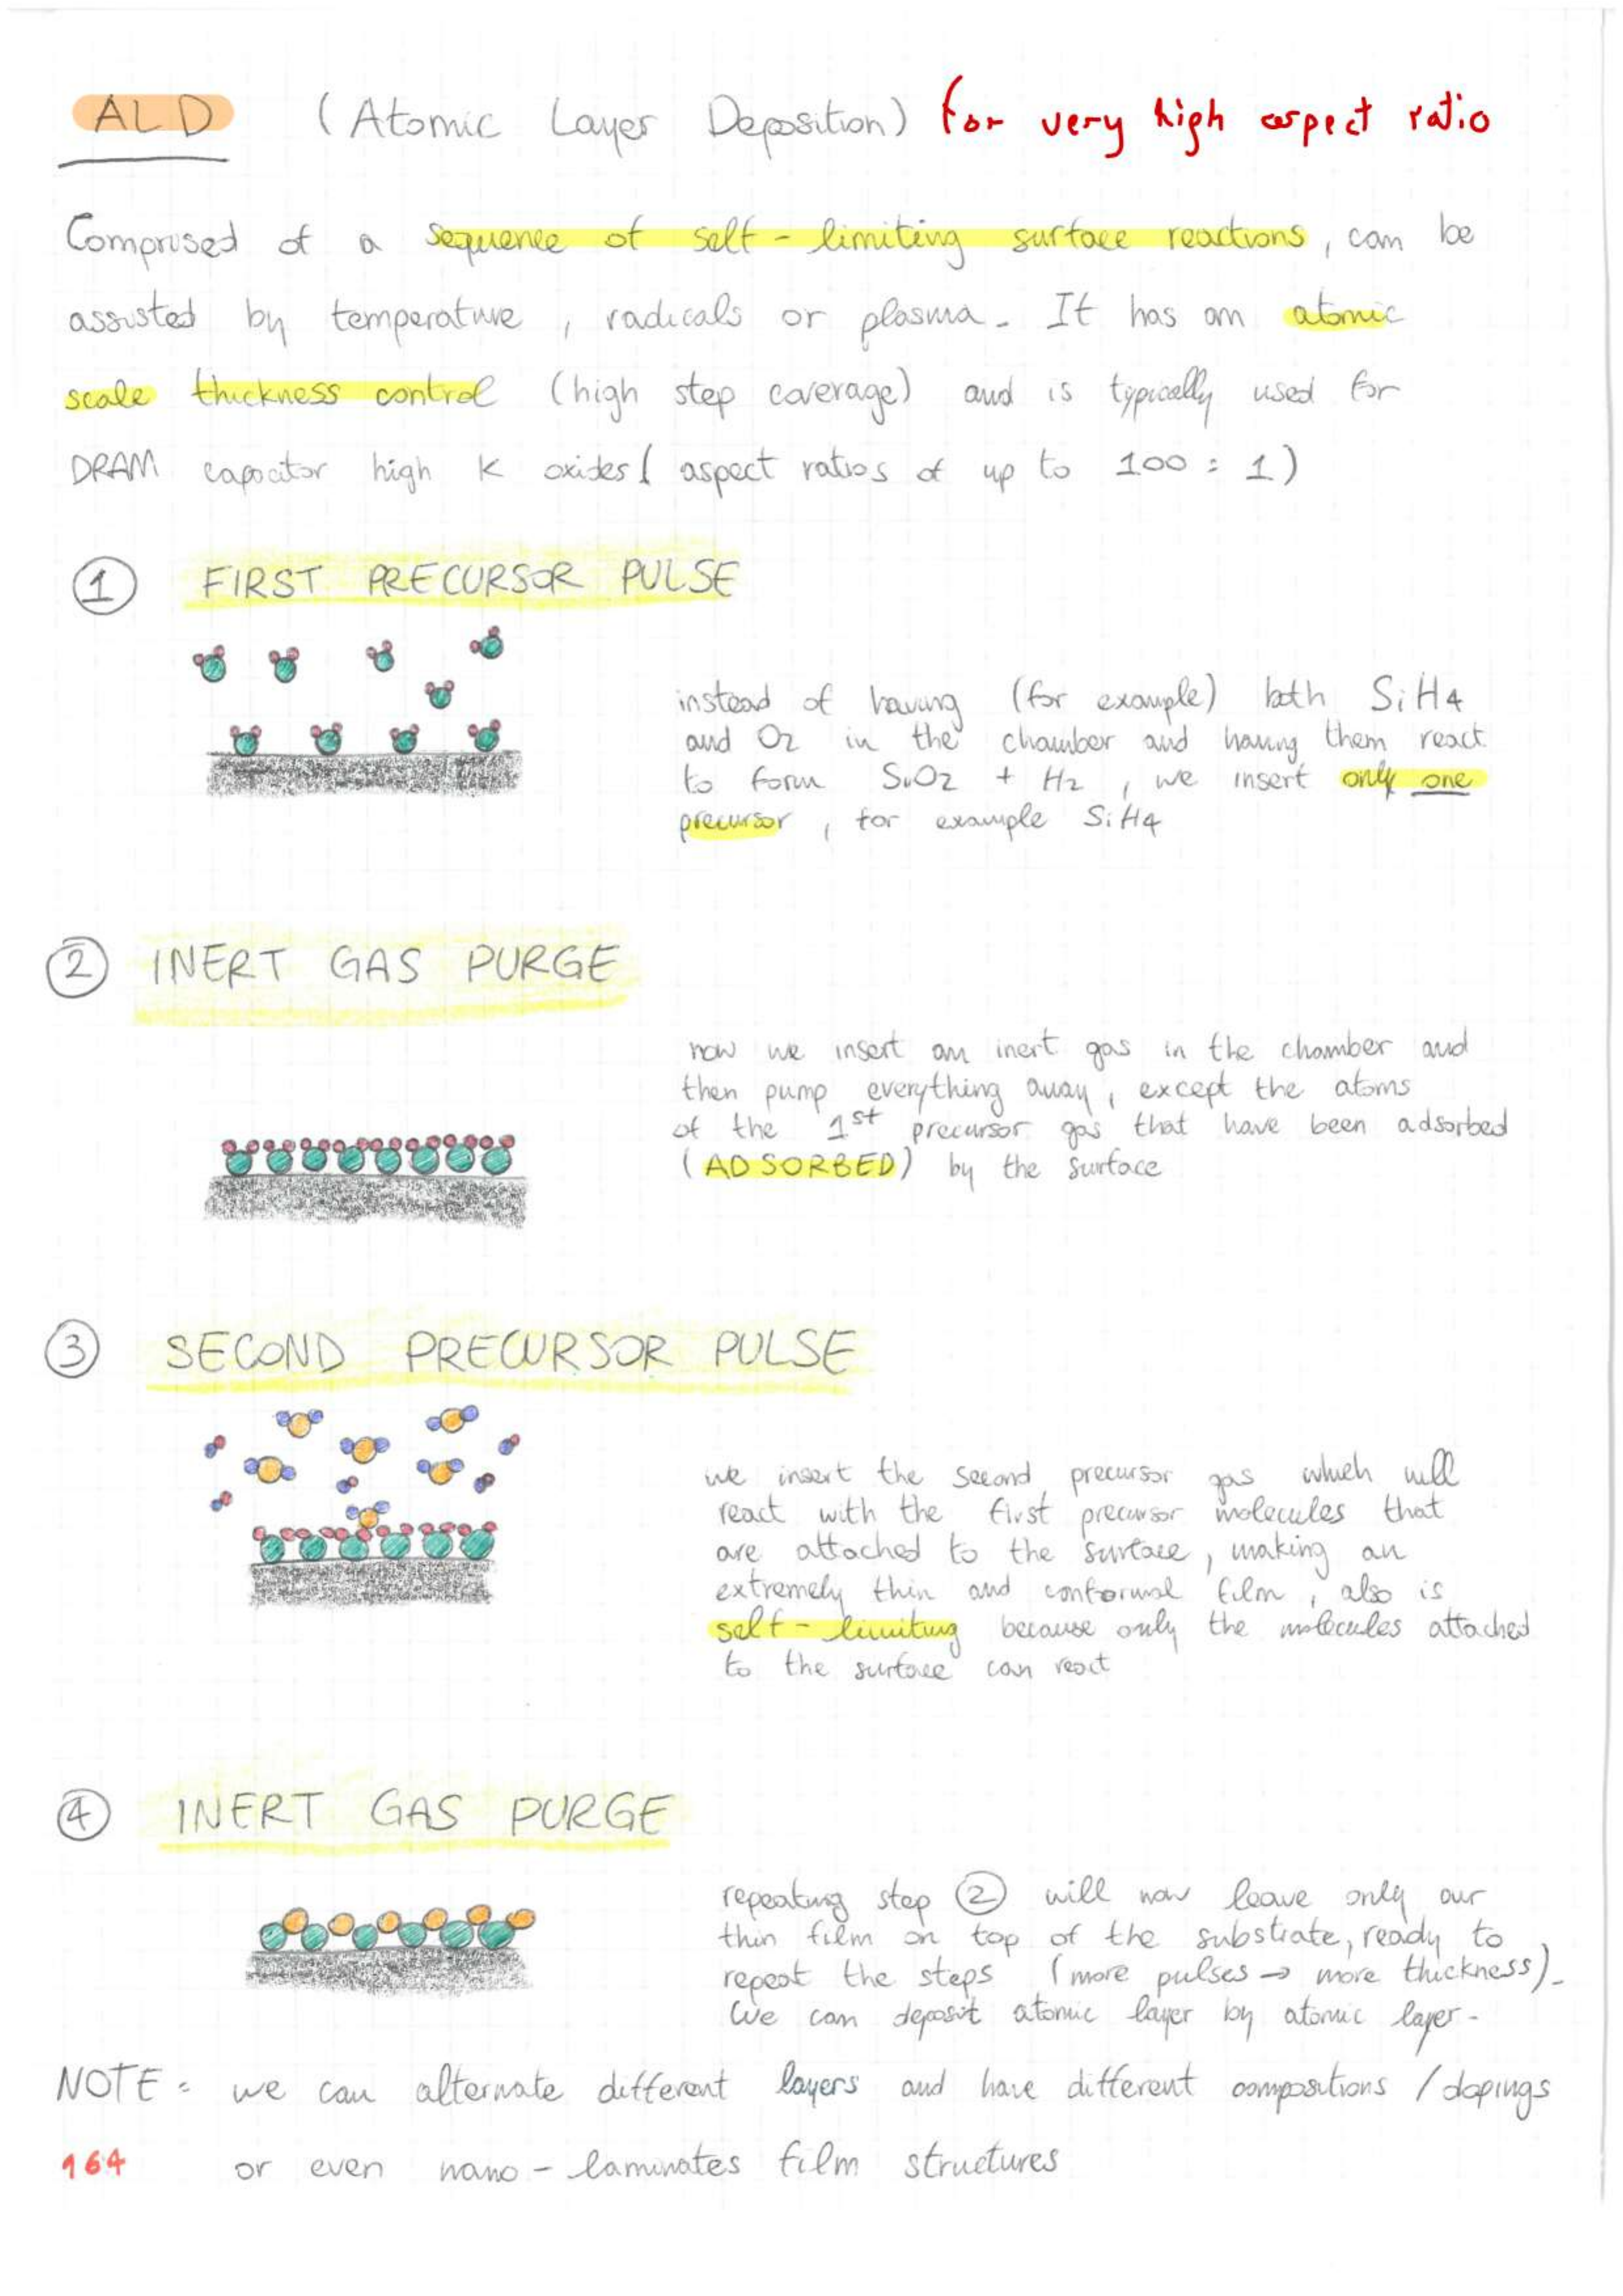 ALD (Atomic Layer Deposition) for very high aspect ratio
Comprised of a sequence of self-limiting surface reactions, can be
assisted by temperature, radicals or plasma. It has an atomic
scale thickness control (high step coverage) and is typically used for
DRAM capacitor high K oxides (aspect ratios of up to 100:1)
① FIRST PRECURSOR PULSE
instead of having (for example) both SiH4
and O2 in the chamber and having them react
to form SiO2 + H2, we insert only one
precursor, for example SiH4
② INERT GAS PURGE
now we insert an inert gas in the chamber and
then pump everything away, except the atoms
of the 1st precursor gas that have been adsorbed
(ADSORBED) by the surface
③ SECOND PRECURSOR PULSE
we insert the second precursor gas which will
react with the first precursor molecules that
are attached to the surface, making an
extremely thin and conformal film, also is
self-limiting because only the molecules attached
to the surface can react
④ INERT GAS PURGE
repeating step ② will now leave only our
thin film on top of the substrate, ready to
repeat the steps (more pulses → more thickness).
We can deposit atomic layer by atomic layer.
NOTE: we can alternate different layers and have different compositions / dopings
164 or even nano-laminates film structures